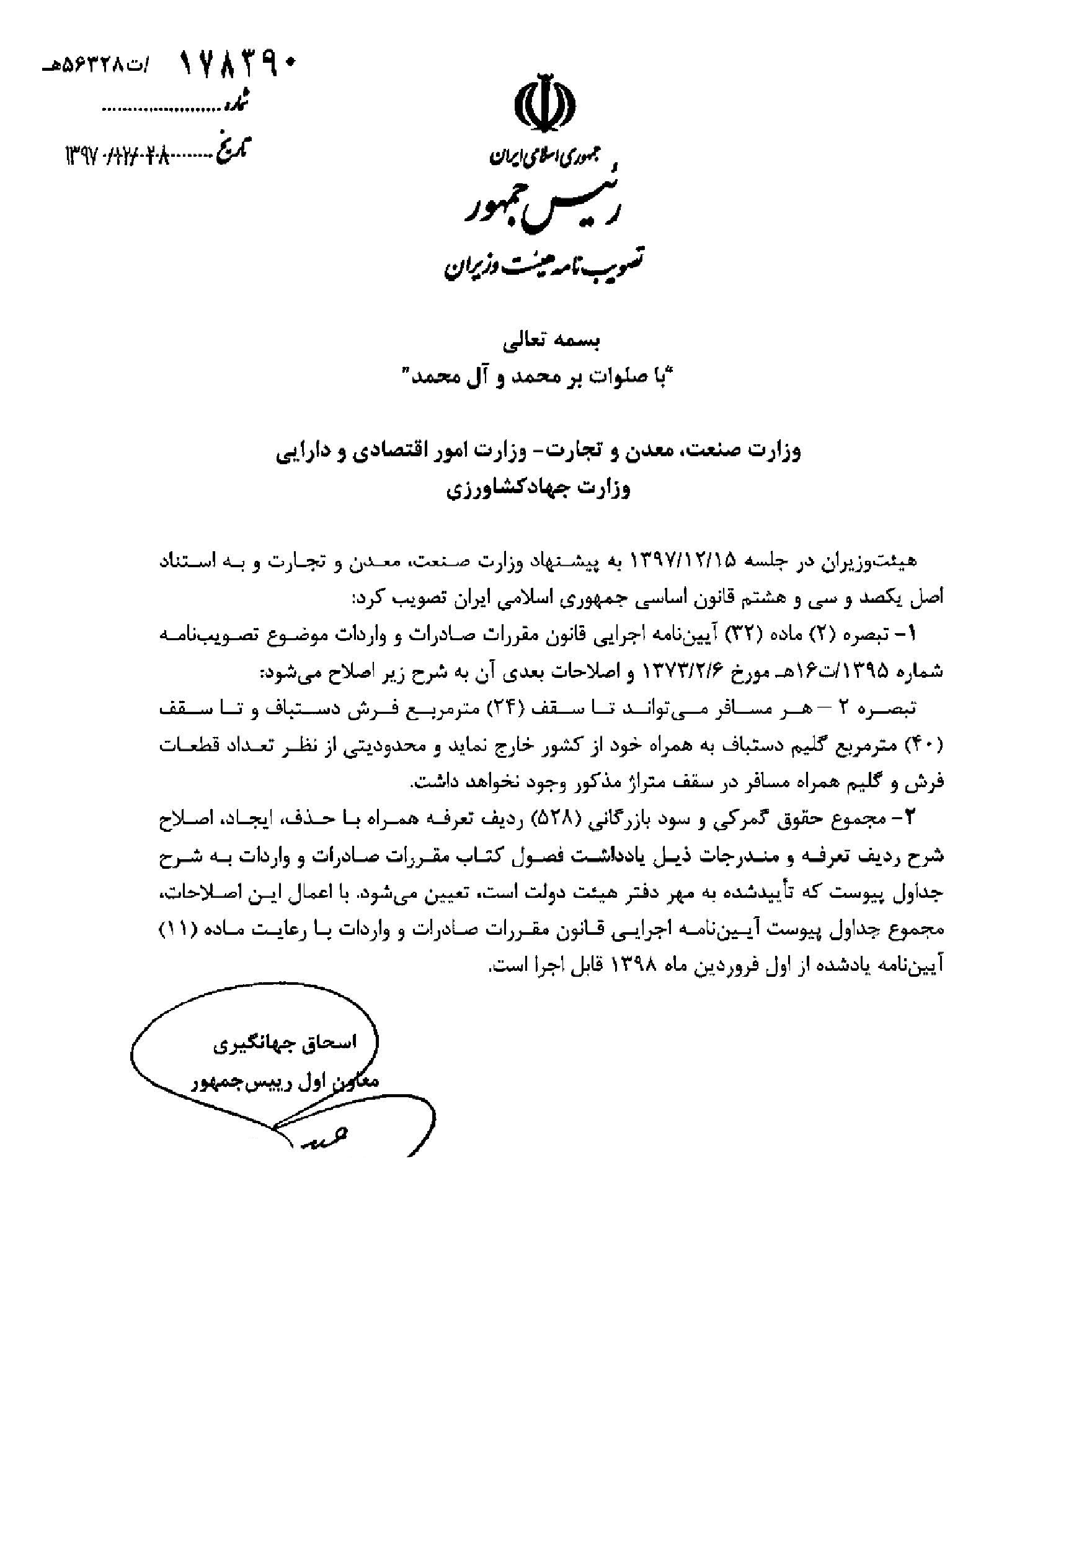 ۱۷۸۳۹۰ /ت۵۶۳۲۸هـ
شماره
تاریخ ۱۳۹۷/۱۲/۲۸
جمهوری اسلامی ایران
رئیس جمهور
تصویب نامه هیئت وزیران
بسمه تعالی
"با صلوات بر محمد و آل محمد"
وزارت صنعت، معدن و تجارت- وزارت امور اقتصادی و دارایی
وزارت جهادکشاورزی
هیئت‌وزیران در جلسه ۱۳۹۷/۱۲/۱۵ به پیشنهاد وزارت صنعت، معدن و تجارت و به استناد
اصل یکصد و سی و هشتم قانون اساسی جمهوری اسلامی ایران تصویب کرد:
۱- تبصره (۲) ماده (۳۲) آیین‌نامه اجرایی قانون مقررات صادرات و واردات موضوع تصویب‌نامه
شماره ۱۳۹۵/ت۱۶هـ مورخ ۱۳۷۳/۲/۶ و اصلاحات بعدی آن به شرح زیر اصلاح می‌شود:
تبصره ۲ – هر مسافر می‌تواند تا سقف (۲۴) مترمربع فرش دستباف و تا سقف
(۴۰) مترمربع گلیم دستباف به همراه خود از کشور خارج نماید و محدودیتی از نظر تعداد قطعات
فرش و گلیم همراه مسافر در سقف متراژ مذکور وجود نخواهد داشت.
۲- مجموع حقوق گمرکی و سود بازرگانی (۵۲۸) ردیف تعرفه همراه با حذف، ایجاد، اصلاح
شرح ردیف تعرفه و مندرجات ذیل یادداشت فصول کتاب مقررات صادرات و واردات به شرح
جداول پیوست که تأییدشده به مهر دفتر هیئت دولت است، تعیین می‌شود. با اعمال این اصلاحات،
مجموع جداول پیوست آیین‌نامه اجرایی قانون مقررات صادرات و واردات با رعایت ماده (۱۱)
آیین‌نامه یادشده از اول فروردین ماه ۱۳۹۸ قابل اجرا است.
اسحاق جهانگیری
معاون اول رییس‌جمهور